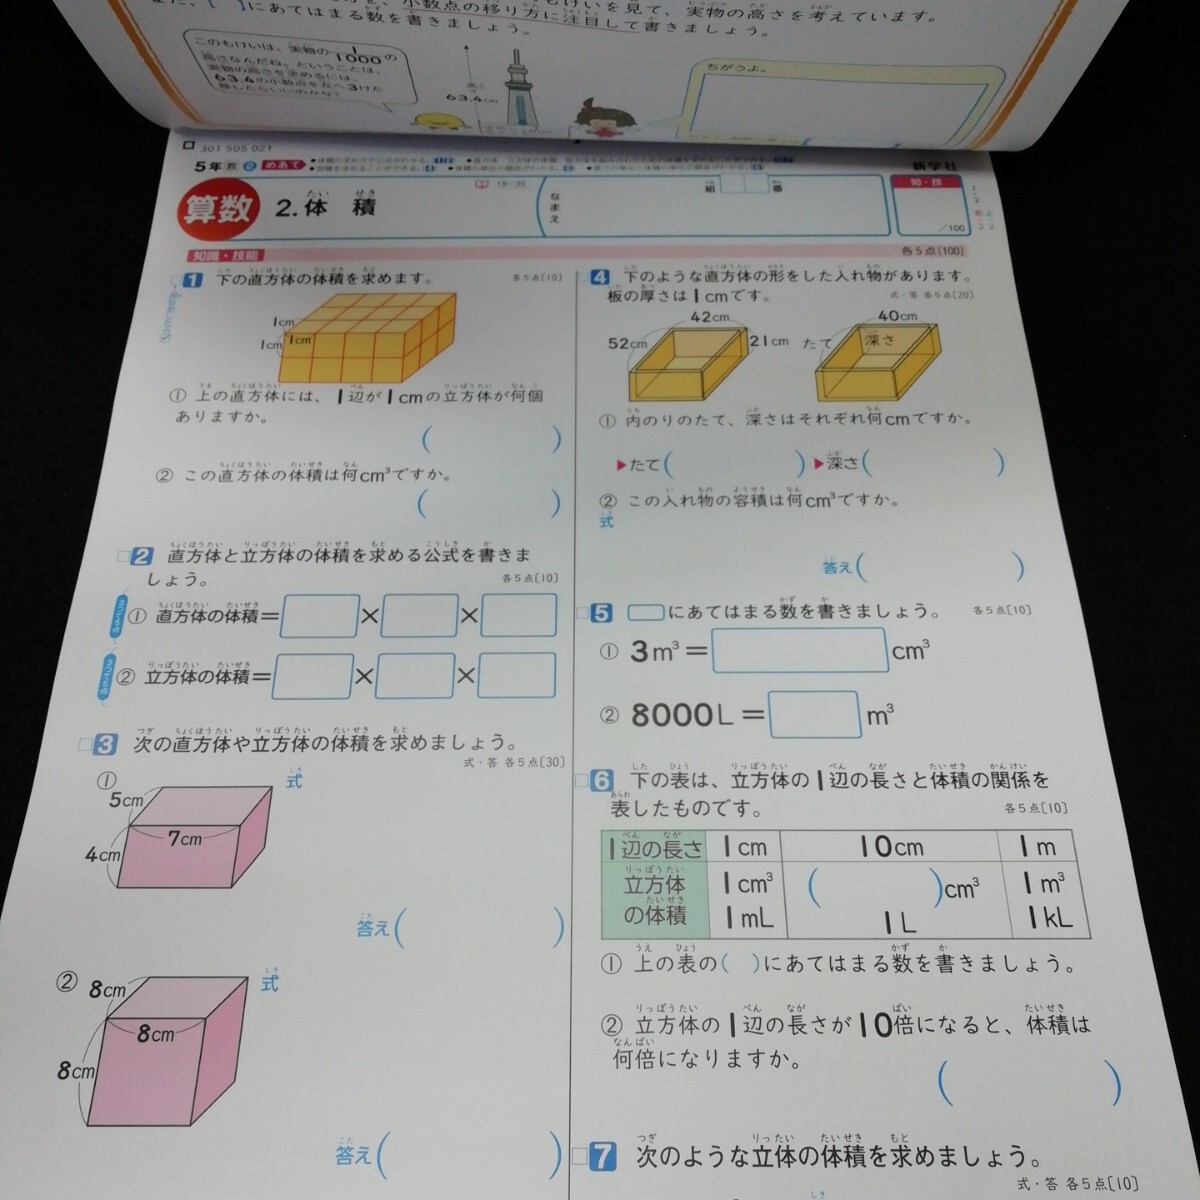 小数点の移り方に注目して書きましょう。
もけいを見て、実物の高さを考えています。
にあてはまる数を書きましょう。
このもけいは、実物の1/1000の
高さなんだね。ということは、
実物の高さを求めるには、
63.4の小数点を左へ3けた
移したらいいのかな?
63.4cm
ちがうよ。
301 505 021
5年 教 2 めあて
新学社
算数
2.体積
たい せき
18~35
なまえ
組 番
知・技
/100
知識・技能
各5点[100]
1 下の直方体の体積を求めます。
各5点[10]
1cm
1cm
1cm
① 上の直方体には、1辺が1cmの立方体が何個
ありますか。
( )
② この直方体の体積は何cm³ですか。
( )
2 直方体と立方体の体積を求める公式を書きま
しょう。
各5点[10]
3つで5点
① 直方体の体積= × ×
3つで5点
② 立方体の体積= × ×
3 次の直方体や立方体の体積を求めましょう。
式・答 各5点[30]
① 式
5cm
7cm
4cm
答え( )
② 式
8cm
8cm
8cm
答え( )
4 下のような直方体の形をした入れ物があります。
板の厚さは1cmです。
式・答 各5点[20]
42cm
52cm
21cm
40cm
たて
深さ
① 内のりのたて、深さはそれぞれ何cmですか。
▶たて( ) ▶深さ( )
② この入れ物の容積は何cm³ですか。
式
答え( )
5 □にあてはまる数を書きましょう。
各5点[10]
① 3m³= cm³
② 8000L= m³
6 下の表は、立方体の1辺の長さと体積の関係を
表したものです。
各5点[10]
1辺の長さ 1cm 10cm 1m
立方体 1cm³ ( )cm³ 1m³
の体積 1mL 1L 1kL
① 上の表の( )にあてはまる数を書きましょう。
② 立方体の1辺の長さが10倍になると、体積は
何倍になりますか。
( )
7 次のような立体の体積を求めましょう。
式・答 各5点[10]